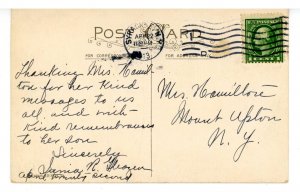 POST CARD
FOR CORRESPONDENCE
FOR ADDRESS
APR 22
Thanking Mrs. Hamil-
ton for her kind
messages to us
all and with
kind remembrances
to her son
Sincerely
Mrs. Hamilton
Mount Upton
N. Y.